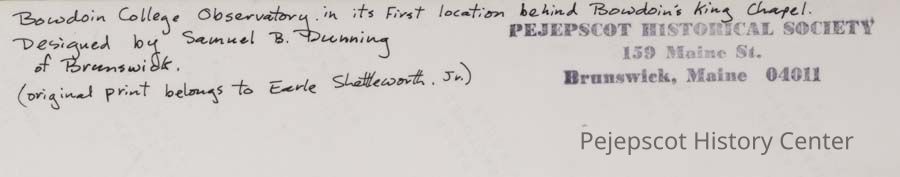 Bowdoin College Observatory. in its First location behind Bowdoin's King Chapel.
Designed by Samuel B. Dunning
of Brunswick.
(original print belongs to Earle Shettleworth. Jr.)
PEJEPSCOT HISTORICAL SOCIETY
159 Maine St.
Brunswick, Maine 04011
Pejepscot History Center